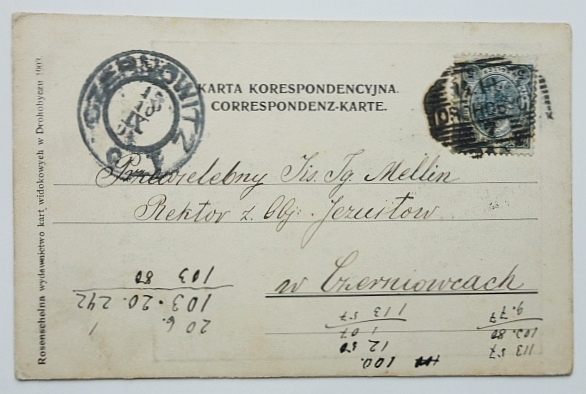 CZERNOWITZ
KARTA KORESPONDENCYJNA.
CORRESPONDENZ-KARTE.
Przewielebny Ks. Ig. Mellin
Rektor z. Obj. Jezuitów
w Czerniowcach
Rosenscheina wydawnictwo kart widokowych w Drohobyczu 1903
113 57
103.80
9.77
100.
12 50
1 07
113 57
20 6. 1
103.20.242
103 80